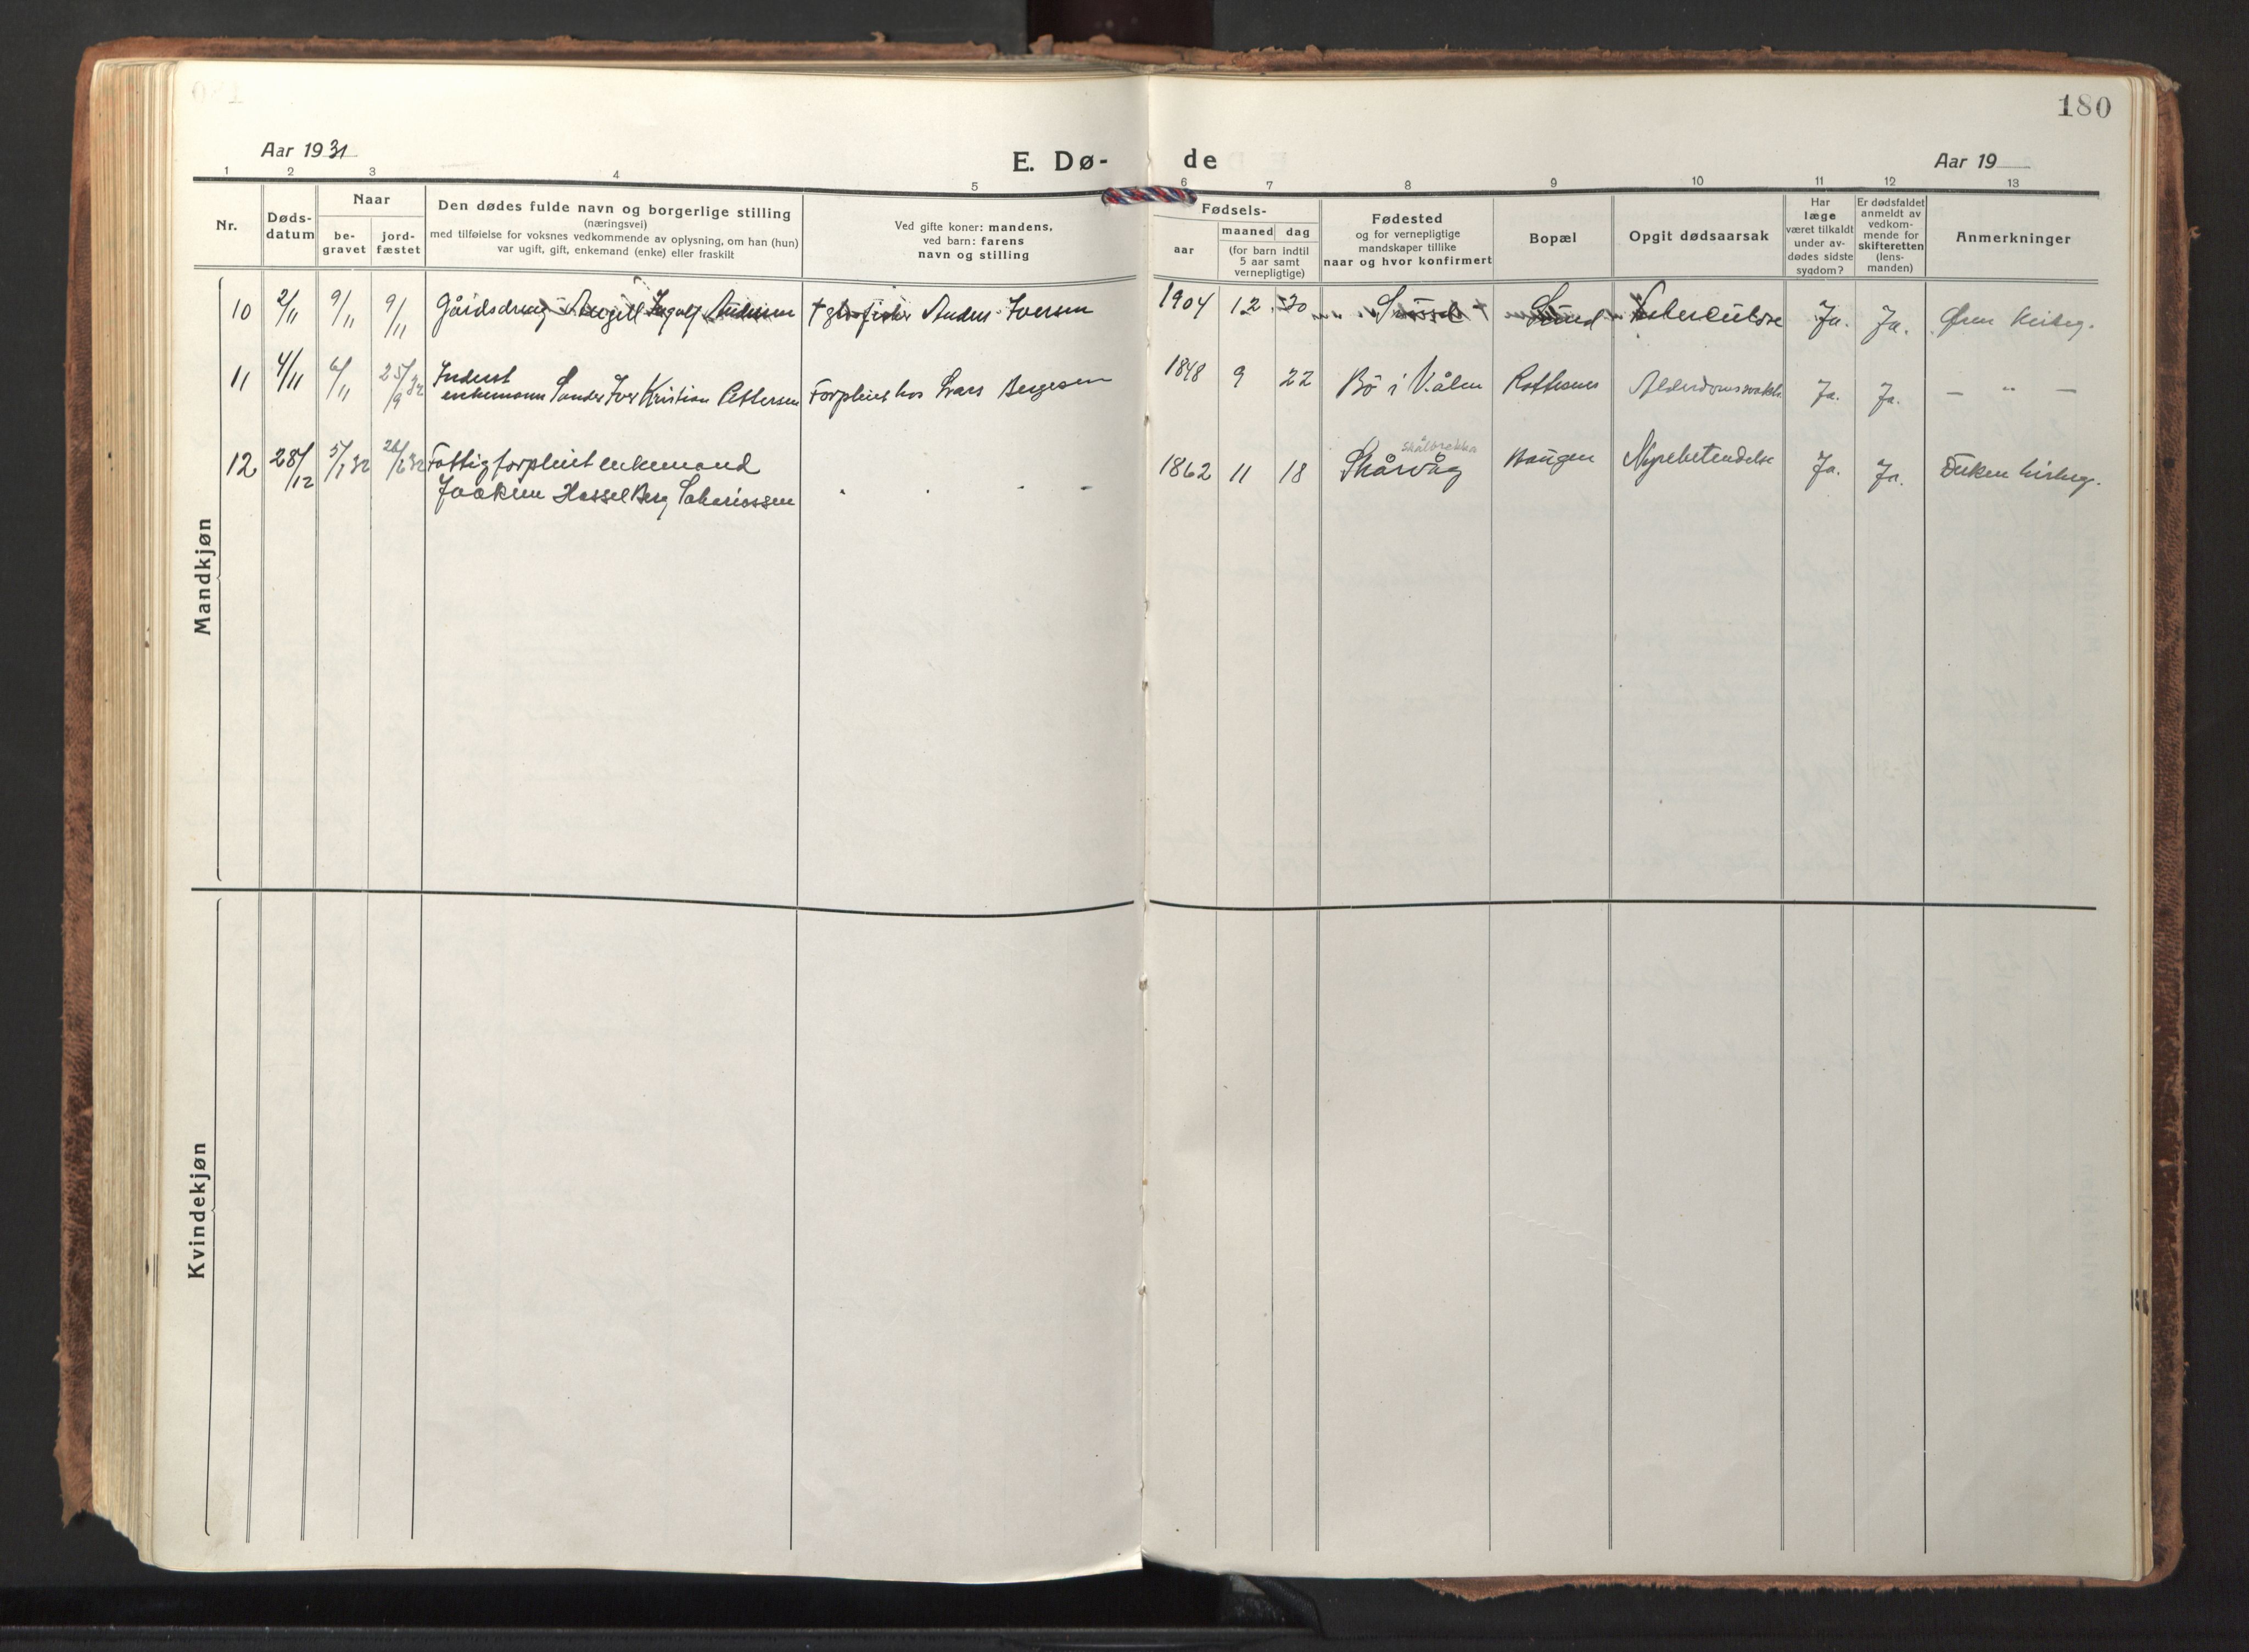 180
Aar 1931
E. Dø-
de
Aar 19
1 2 3 4 5 6 7 8 9 10 11 12 13
Nr.
Døds-
datum
Naar
be-
gravet
jord-
fæstet
Den dødes fulde navn og borgerlige stilling
(næringsvei)
med tilføielse for voksnes vedkommende av oplysning, om han (hun)
var ugift, gift, enkemand (enke) eller fraskilt
Ved gifte koner: mandens,
ved barn: farens
navn og stilling
Fødsels-
aar
maaned dag
(for barn indtil
5 aar samt
vernepligtige)
Fødested
og for vernepligtige
mandskaper tillike
naar og hvor konfirmert
Bopæl
Opgit dødsaarsak
Har
læge
været tilkaldt
under av-
dødes sidste
sygdom?
Er dødsfaldet
anmeldt av
vedkom-
mende for
skifteretten
(lens-
manden)
Anmerkninger
Mandkjøn
10 2/11 9/11 9/11 Gårdsdreng Ingolf Andersen Anders Iversen 1904 12 20 Sund Tuberculose Ja. Ja. Øren kirkeg.
11 4/11 6/11 25/9 32 Inderst
enkemann Sander Iver Kristian Pettersen Forpleiet hos Lars Bergesen 1848 9 22 Bö i V.ålen Alderdomssvakh. Ja. Ja. — " —
Skålbrekka
12 28/12 5/1 32 26/6 32 Fattigforpleiet enkemand 1862 11 18 Skårvåg Haugen Nyrebetendelse Ja. Ja. kirkeg.
Joakim Hassel Berg Sakariassen - - - -
Kvindekjøn